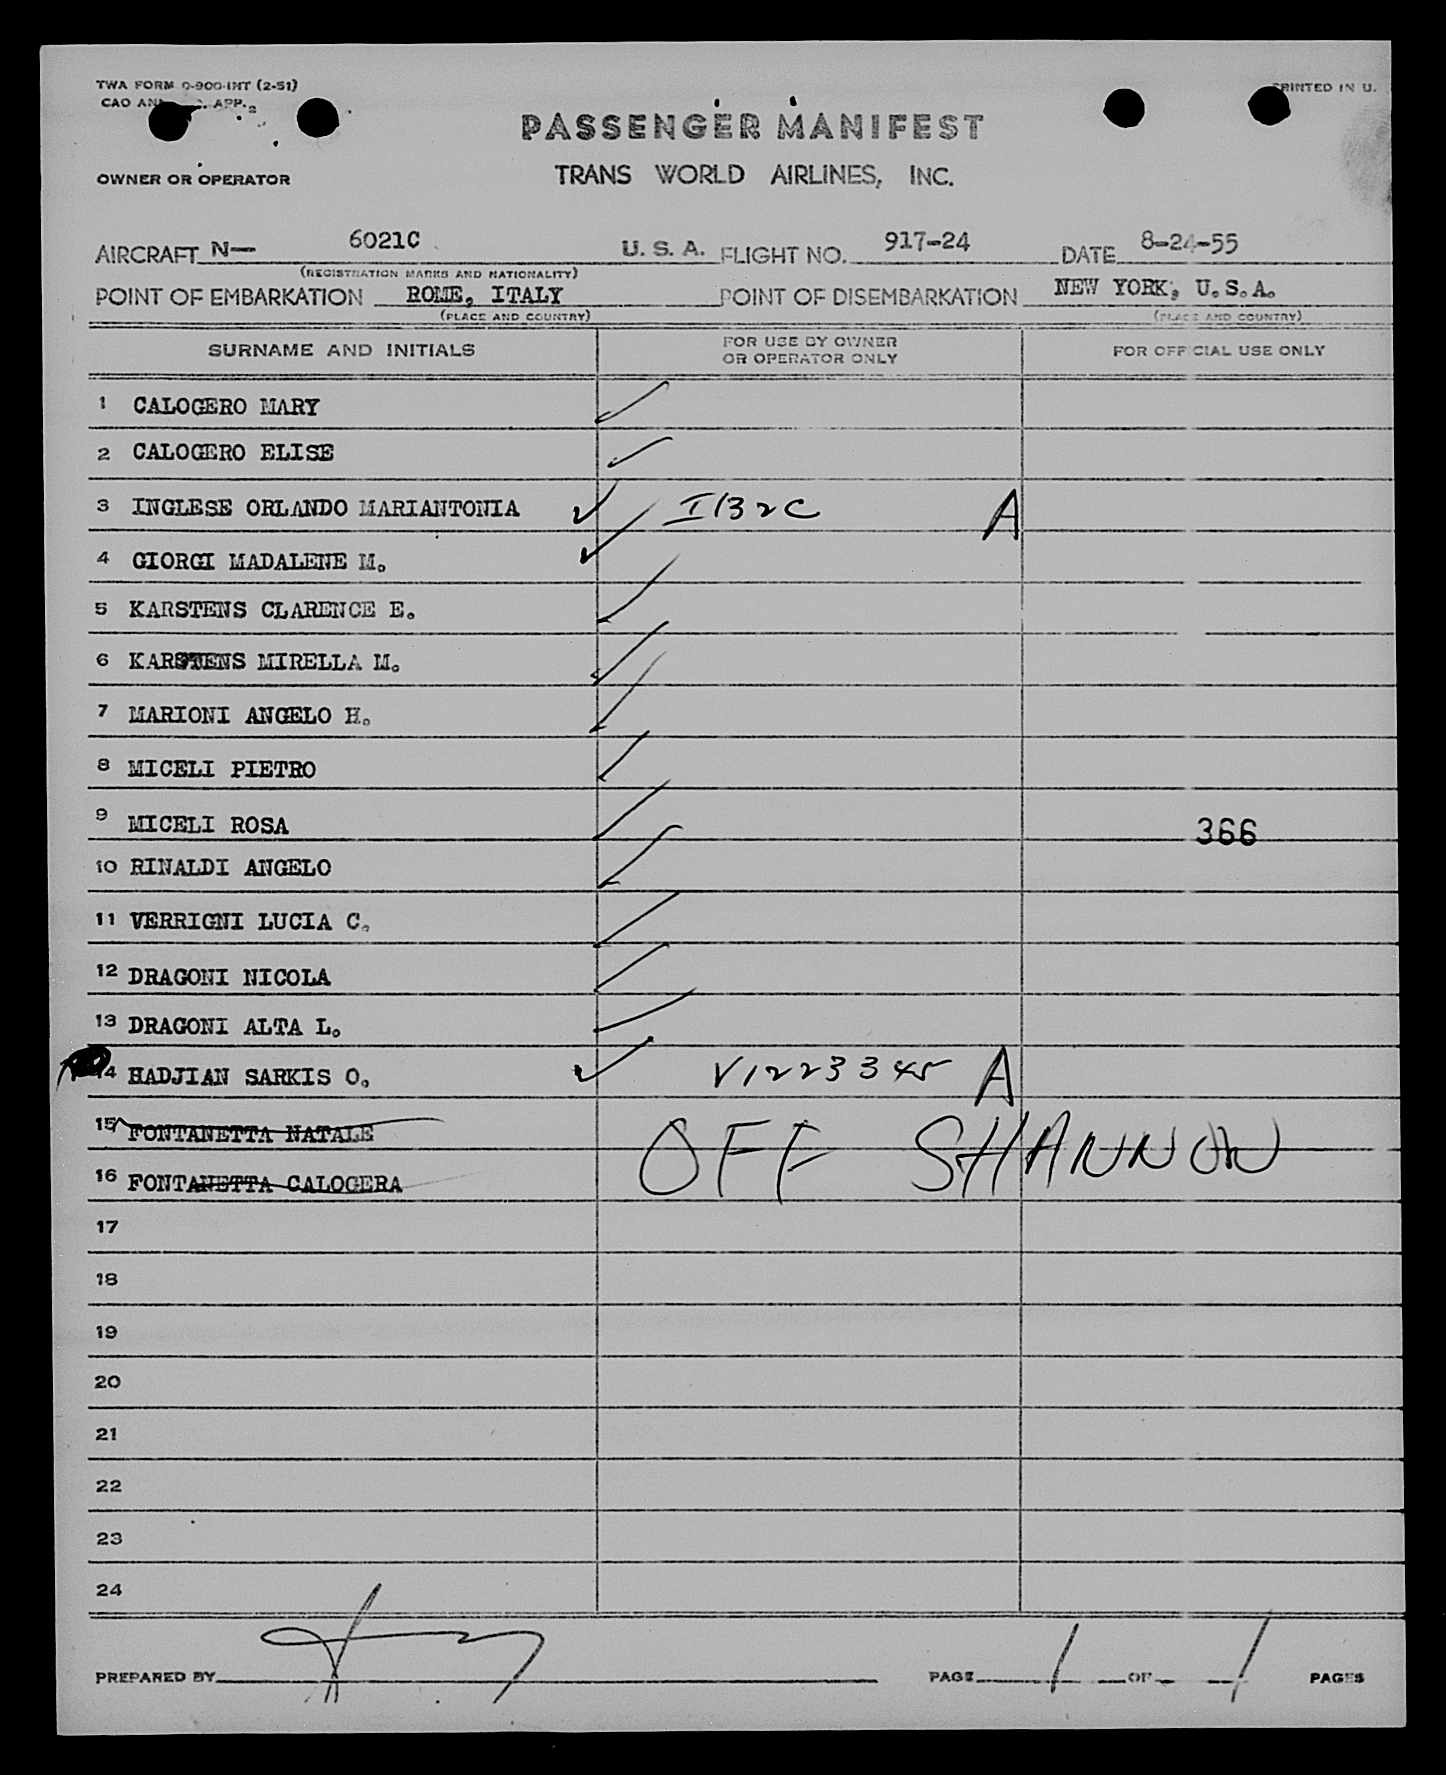 TWA FORM O-900-INT (2-51)
PRINTED IN U.
CAO APP. 2
PASSENGER MANIFEST
OWNER OR OPERATOR
TRANS WORLD AIRLINES, INC.
AIRCRAFT N— 6021C U. S. A. FLIGHT NO. 917-24 DATE 8-24-55
(REGISTRATION MARKS AND NATIONALITY)
POINT OF EMBARKATION ROME, ITALY POINT OF DISEMBARKATION NEW YORK, U.S.A.
(PLACE AND COUNTRY) (PLACE AND COUNTRY)
SURNAME AND INITIALS FOR USE BY OWNER OR OPERATOR ONLY FOR OFFICIAL USE ONLY
1 CALOGERO MARY
2 CALOGERO ELISE
3 INGLESE ORLANDO MARIANTONIA I132C A
4 GIORGI MADALENE M.
5 KARSTENS CLARENCE E.
6 KARSTENS MIRELLA M.
7 MARIONI ANGELO H.
8 MICELI PIETRO
9 MICELI ROSA 366
10 RINALDI ANGELO
11 VERRIGNI LUCIA C.
12 DRAGONI NICOLA
13 DRAGONI ALTA L.
14 HADJIAN SARKIS O. V1223345 A
15 FONTANETTA NATALE
OFF SHANNON
16 FONTANETTA CALOGERA
17
18
19
20
21
22
23
24
PREPARED BY PAGE 1 OF 1 PAGES